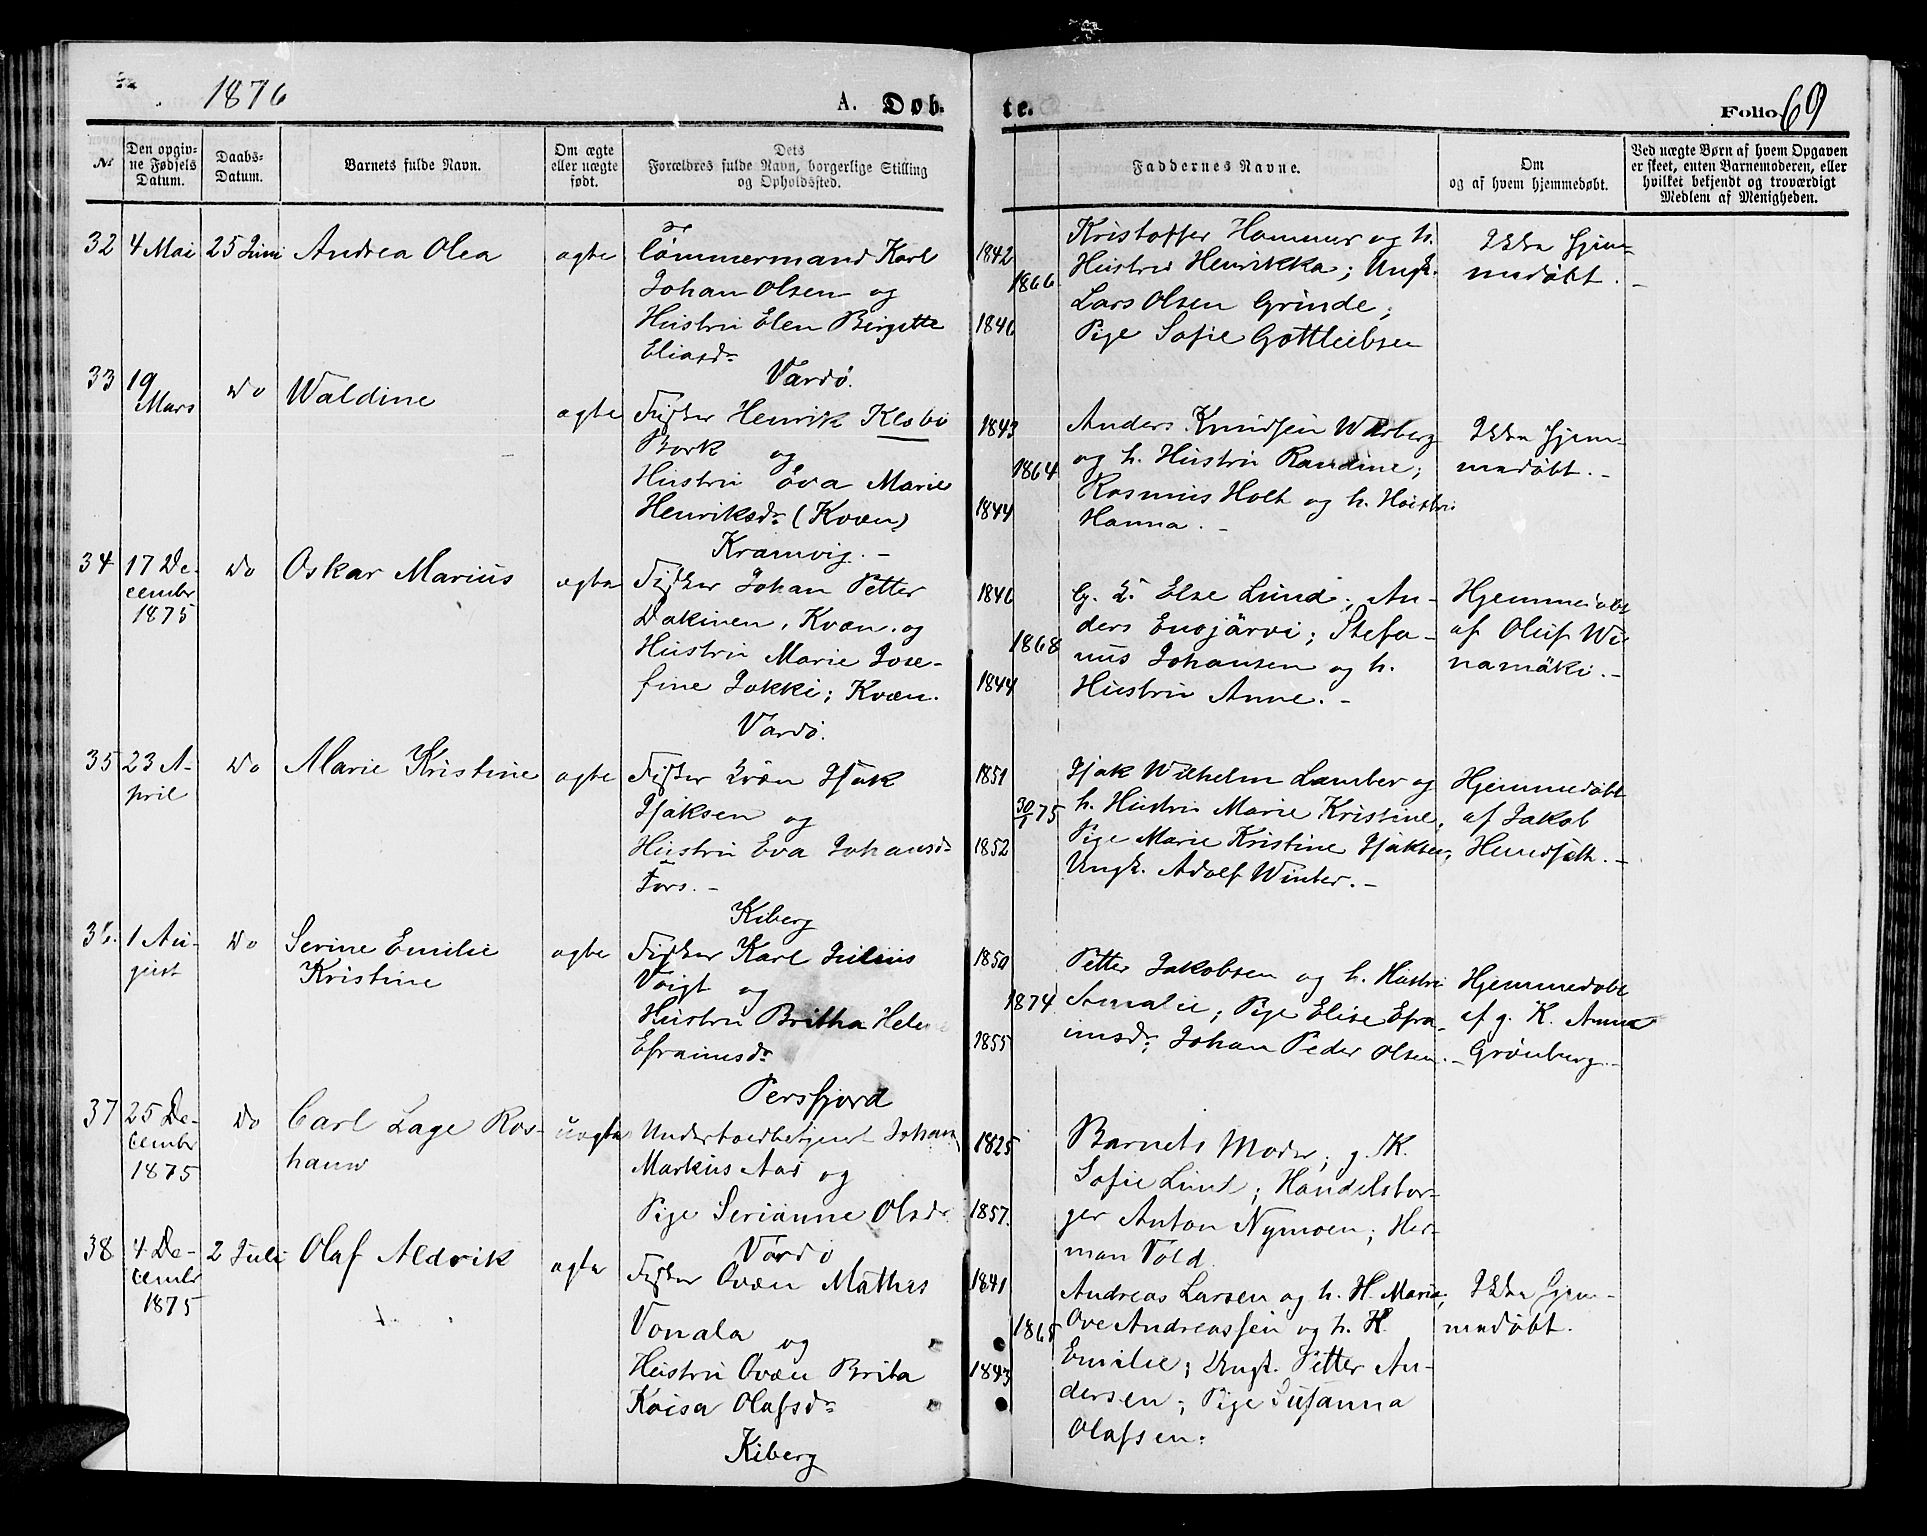 1876
A. Døb-
te.
Folio 69
No
Den opgiv-
ne Fødsels
Datum.
Daabs-
Datum.
Barnets fulde Navn.
Om ægte
eller uægte
født.
Dets
Forældres fulde Navn, borgerlige Stilling
og Opholdssted.
Faddernes Navne.
Om
og af hvem hjemmedøbt.
Ved uægte Børn af hvem Opgaven
er skeet, enten Barnemoderen, eller
hvilket bekjendt og troværdigt
Medlem af Menigheden.
32
4 Mai
25 Juni
Andrea Olea
ægte
Tømmermand Karl
Johan Olsen og
Hustru Elen Birgitte
Eliasdr
Vardø.
1842
1866
1846
Kristoffer Hammer og h.
Hustru Henrikka; Ungk.
Lars Olsen Grinde;
Pige Sofie Gottliebsen
Ikke hjem-
medøbt.
33
19
Mars
Do
Waldine
ægte
Fisker Henrik
Bork og
Hustru Eva Marie
Henriksdr (Kvæn)
Kramvig. -
1843
1864
1844
Anders Knudsen Warberg
og h. Hustru Randine;
Rasmus Holt og h. Hustru
Hanna. -
Ikke hjem-
medøbt. -
34
17 De-
cembr
1875
Do
Oskar Marius
ægte
Fisker Johan Petter
Dakinen, Kvæn. og
Hustru Marie Jose-
fine Jokki; Kvæn.
Vardø.
1846
1868
1844
G. K. Else Lund; An-
ders Enojärvi; Stefa-
nus Johansen og h.
Hustru Anne. -
Hjemmedøbt
af Oluf Wi-
namäki. -
35
23 A-
pril
Do
Marie Kristine
ægte
Fisker Kvæn Isak
Isaksen og
Hustru Eva Johansdr
Fors. -
Kiberg
1851
30/1 75
1852
Isak Wilhelm Lamber og
h. Hustru Marie Kristine,
Pige Marie Kristine Isaksen,
Ungk. Adolf Winter. -
Hjemmedøbt
af Jakob
36.
1 Au-
gust
Do
Serine Emilie
Kristine
ægte
Fisker Karl Julius
Voigt og
Hustru Britha Helene
Efraimsdr
Persfjord
1850
1874
1855
Petter Jakobsen og h. Hustru
Amalie; Pige Elise Efra-
imsdr; Johan Peder Olsen. -
Hjemmedøbt
af g. K. Anna
Grønberg. -
37
25 De-
cembr
1875
Do
Carl Lage Ros-
hauw
uægte
Undertoldbetjent Johan
Markus Aas og
Pige Serianne Olsdr
Vardø
1825
1857.
Barnets Moder; g. K.
Sofie Lund; Handelsbor-
ger Anton Nymoen; Her-
man Vold
38
4 De-
cembr
1875
2 Juli
Olaf Aldrik
ægte
Fisker Qvæn Mathis
Vonala og
Hustru Qvæn Brita
Kaisa Olafsdr
Kiberg
1841
1865
1843
Andreas Larsen og h. H. Maria,
Ove Andreassen og h. H.
Emilie; Ungk. Petter An-
dersen; Pige Susanna
Olafsen.
Ikke hjem-
medøbt.